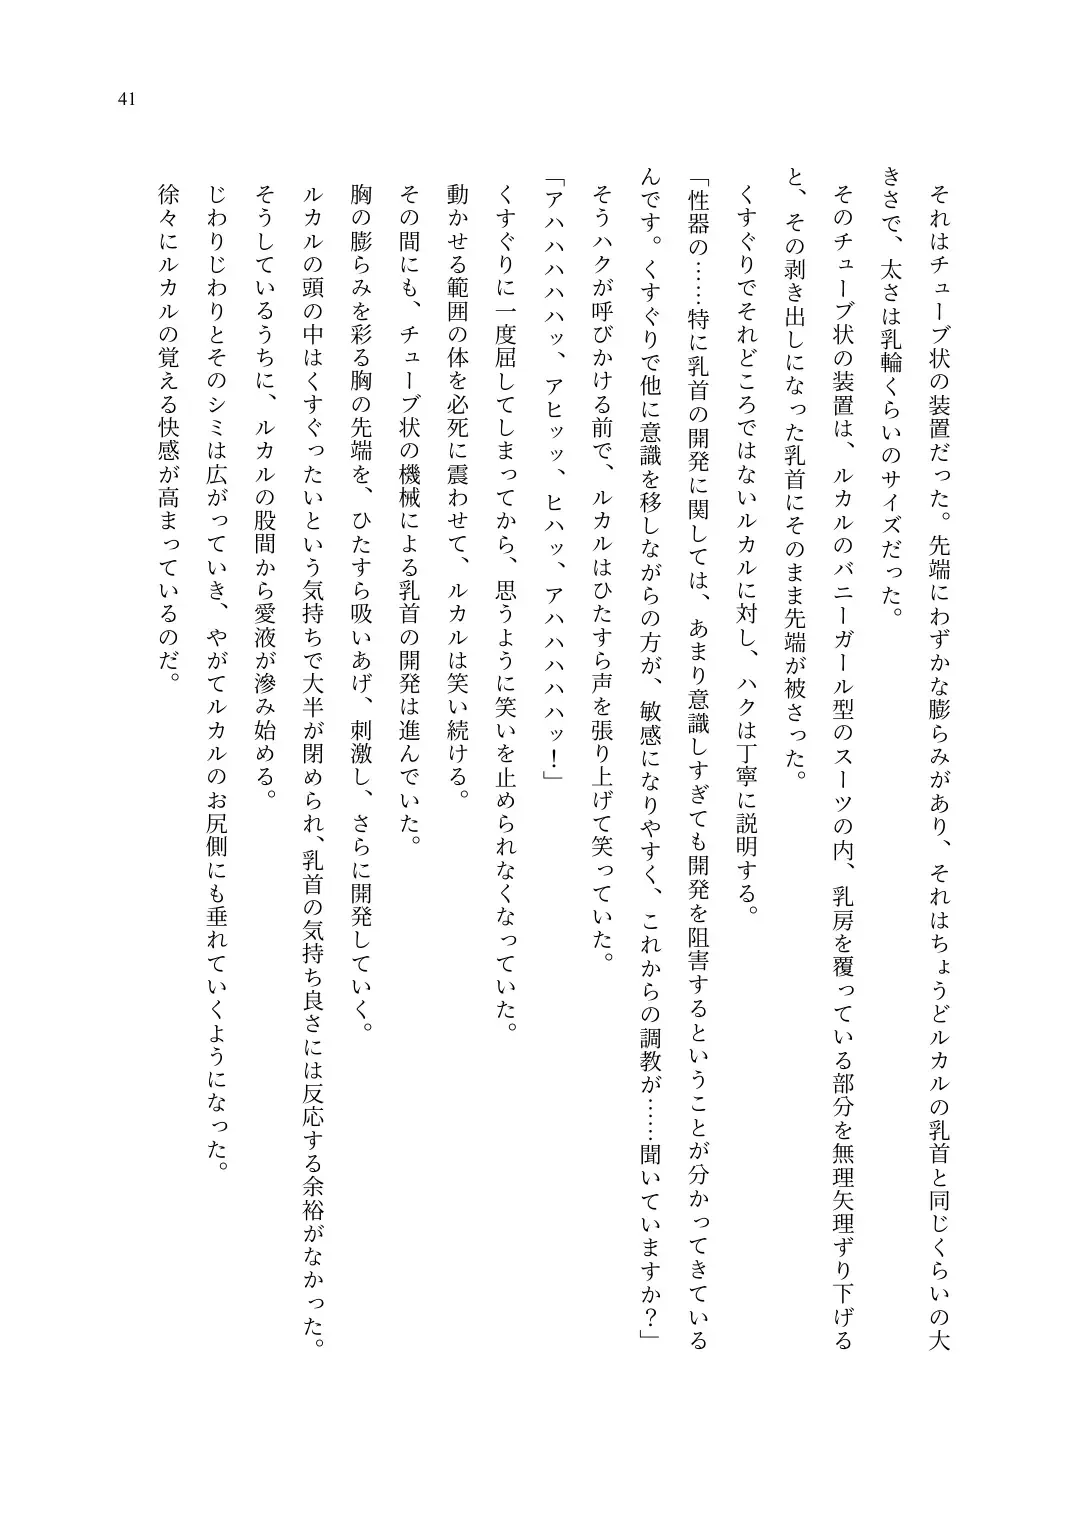 41
それはチューブ状の装置だった。先端にわずかな膨らみがあり、それはちょうどルカルの乳首と同じくらいの大
きさで、太さは乳輪くらいのサイズだった。
そのチューブ状の装置は、ルカルのバニーガール型のスーツの内、乳房を覆っている部分を無理矢理ずり下げる
と、その剥き出しになった乳首にそのまま先端が被さった。
くすぐりでそれどころではないルカルに対し、ハクは丁寧に説明する。
「性器の……特に乳首の開発に関しては、あまり意識しすぎても開発を阻害するということが分かってきている
んです。くすぐりで他に意識を移しながらの方が、敏感になりやすく、これからの調教が……聞いていますか？」
そうハクが呼びかける前で、ルカルはひたすら声を張り上げて笑っていた。
「アハハハハハッ、アヒッッ、ヒハッ、アハハハハハッ！」
くすぐりに一度屈してしまってから、思うように笑いを止められなくなっていた。
動かせる範囲の体を必死に震わせて、ルカルは笑い続ける。
その間にも、チューブ状の機械による乳首の開発は進んでいた。
胸の膨らみを彩る胸の先端を、ひたすら吸いあげ、刺激し、さらに開発していく。
ルカルの頭の中はくすぐったいという気持ちで大半が閉められ、乳首の気持ち良さには反応する余裕がなかった。
そうしているうちに、ルカルの股間から愛液が滲み始める。
じわりじわりとそのシミは広がっていき、やがてルカルのお尻側にも垂れていくようになった。
徐々にルカルの覚える快感が高まっているのだ。